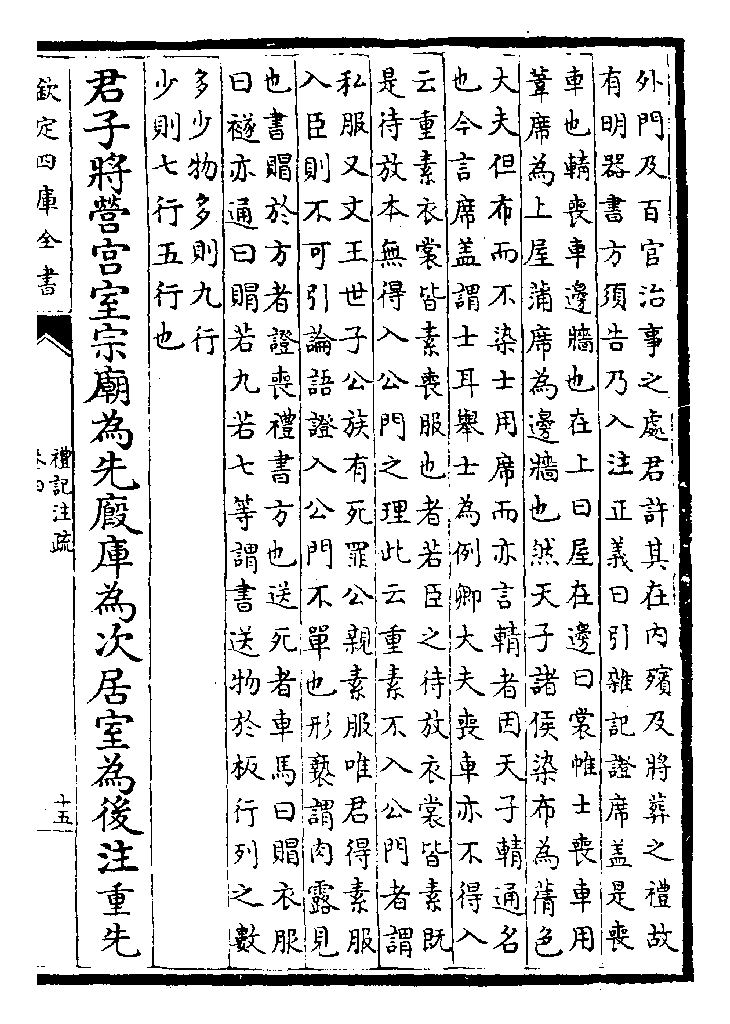 外門及百官治事之處君許其在内殯及將葬之禮故
有明器書方須告乃入注正義曰引雜記證席盖是喪
車也輤喪車邊牆也在上曰屋在邊曰裳帷士喪車用
葦席為上屋蒲席為邊牆也然天子諸侯染布為蒨色
大夫但布而不染士用席而亦言輤者因天子輤通名
也今言席盖謂士耳舉士為例卿大夫喪車亦不得入
云重素衣裳皆素喪服也者若臣之待放衣裳皆素既
是待放本無得入公門之理此云重素不入公門者謂
私服又文王世子公族有死罪公親素服唯君得素服
入臣則不可引論語證入公門不單也形褻謂肉露見
也書賵於方者證喪禮書方也送死者車馬曰賵衣服
曰襚亦通曰賵若九若七等謂書送物於板行列之數
多少物多則九行
少則七行五行也
君子將營宫室宗廟為先廐庫為次居室為後注重先
欽定四庫全書
禮記注疏
卷四
十五